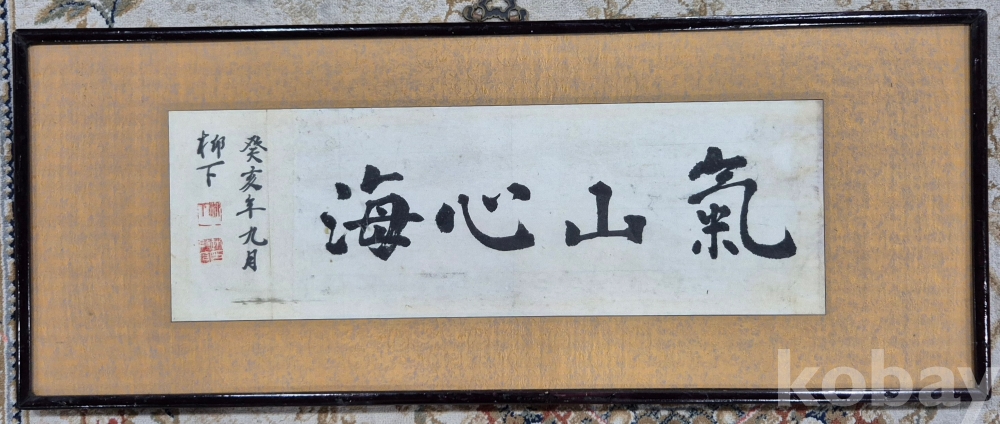 氣山心海
癸亥年九月
柳下
kobay